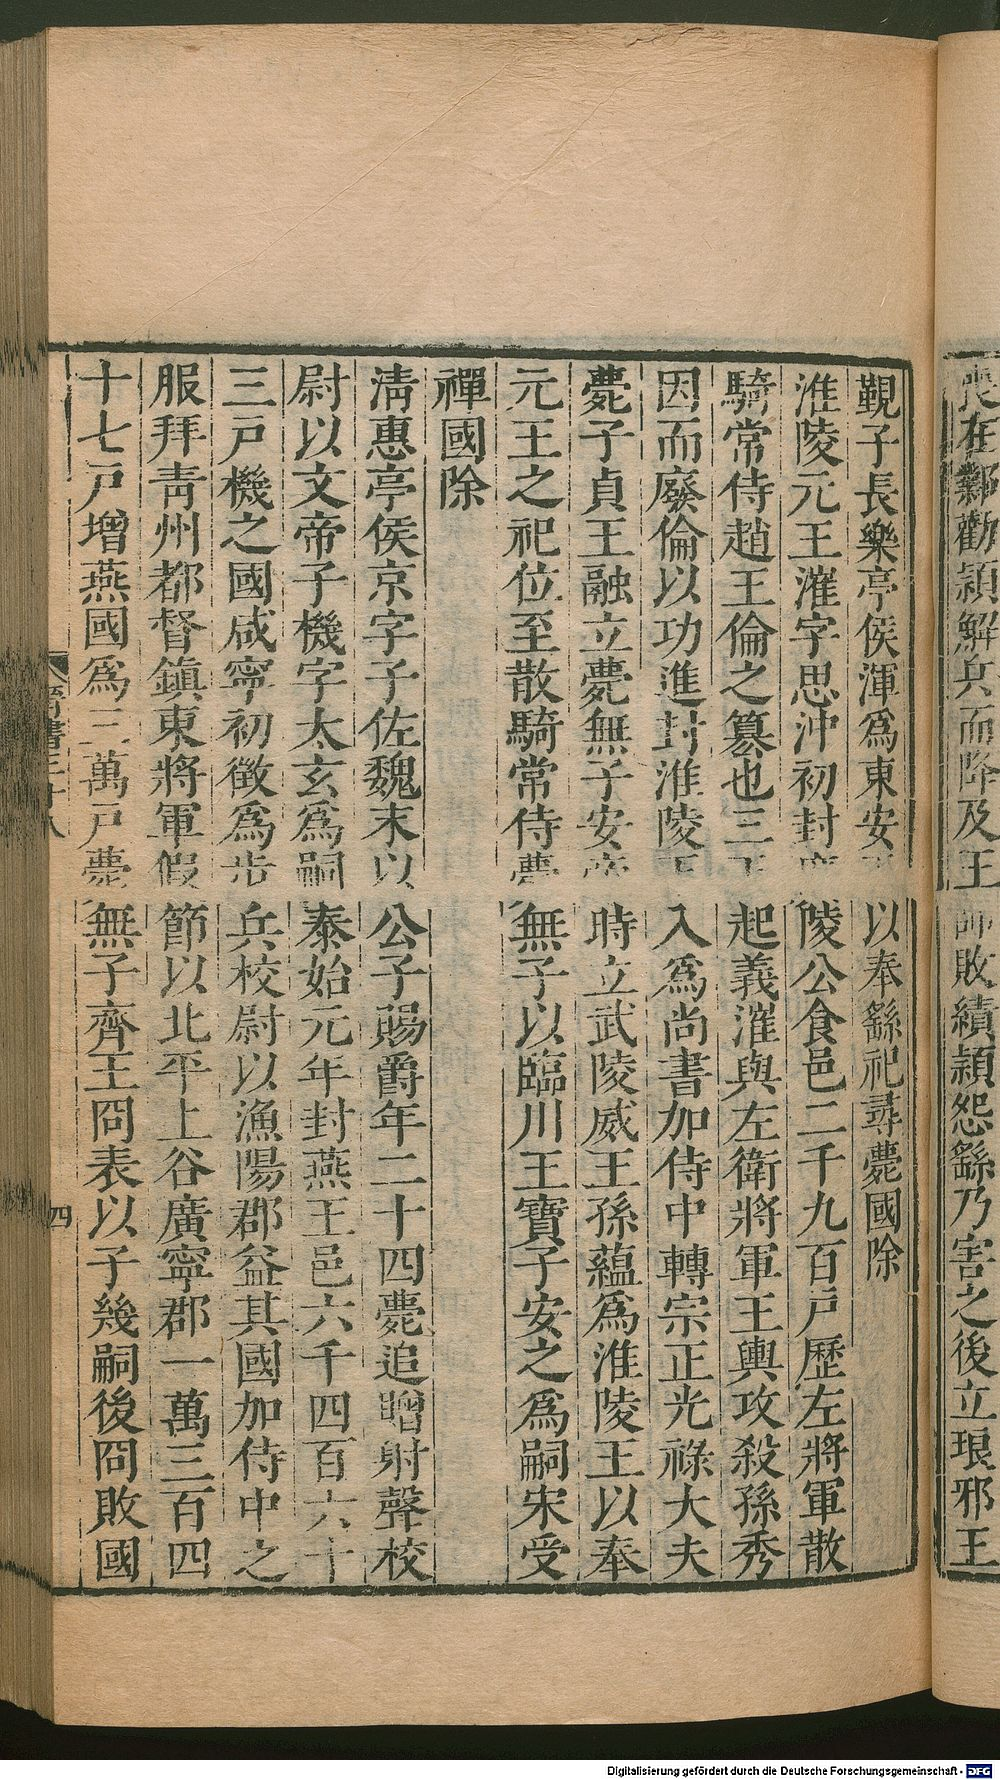 喪在鄴勸穎解兵而降及王師敗績穎怨繇乃害之後立琅邪王
覲子長樂亭侯渾爲東安王以奉繇祀尋薨國除
淮陵元王漼字思沖初封廣陵公食邑二千九百戸歷左將軍散
騎常侍趙王倫之簒也三王起義漼與左衛將軍王輿攻殺孫秀
因而廢倫以功進封淮陵王入爲尚書加侍中轉宗正光祿大夫
薨子貞王融立薨無子安帝時立武陵威王孫蘊爲淮陵王以奉
元王之祀位至散騎常侍薨無子以臨川王寶子安之爲嗣宋受
禪國除
清惠亭侯京字子佐魏末以公子賜爵年二十四薨追贈射聲校
尉以文帝子機字太玄爲嗣泰始元年封燕王邑六千四百六十
三戸機之國咸寧初徵爲步兵校尉以漁陽郡益其國加侍中之
服拜青州都督鎭東將軍假節以北平上谷廣寧郡一萬三百四
十七戸增燕國爲三萬戸薨無子齊王冏表以子幾嗣後冏敗國
晉書三十八
四
Digitalisierung gefördert durch die Deutsche Forschungsgemeinschaft - DFG